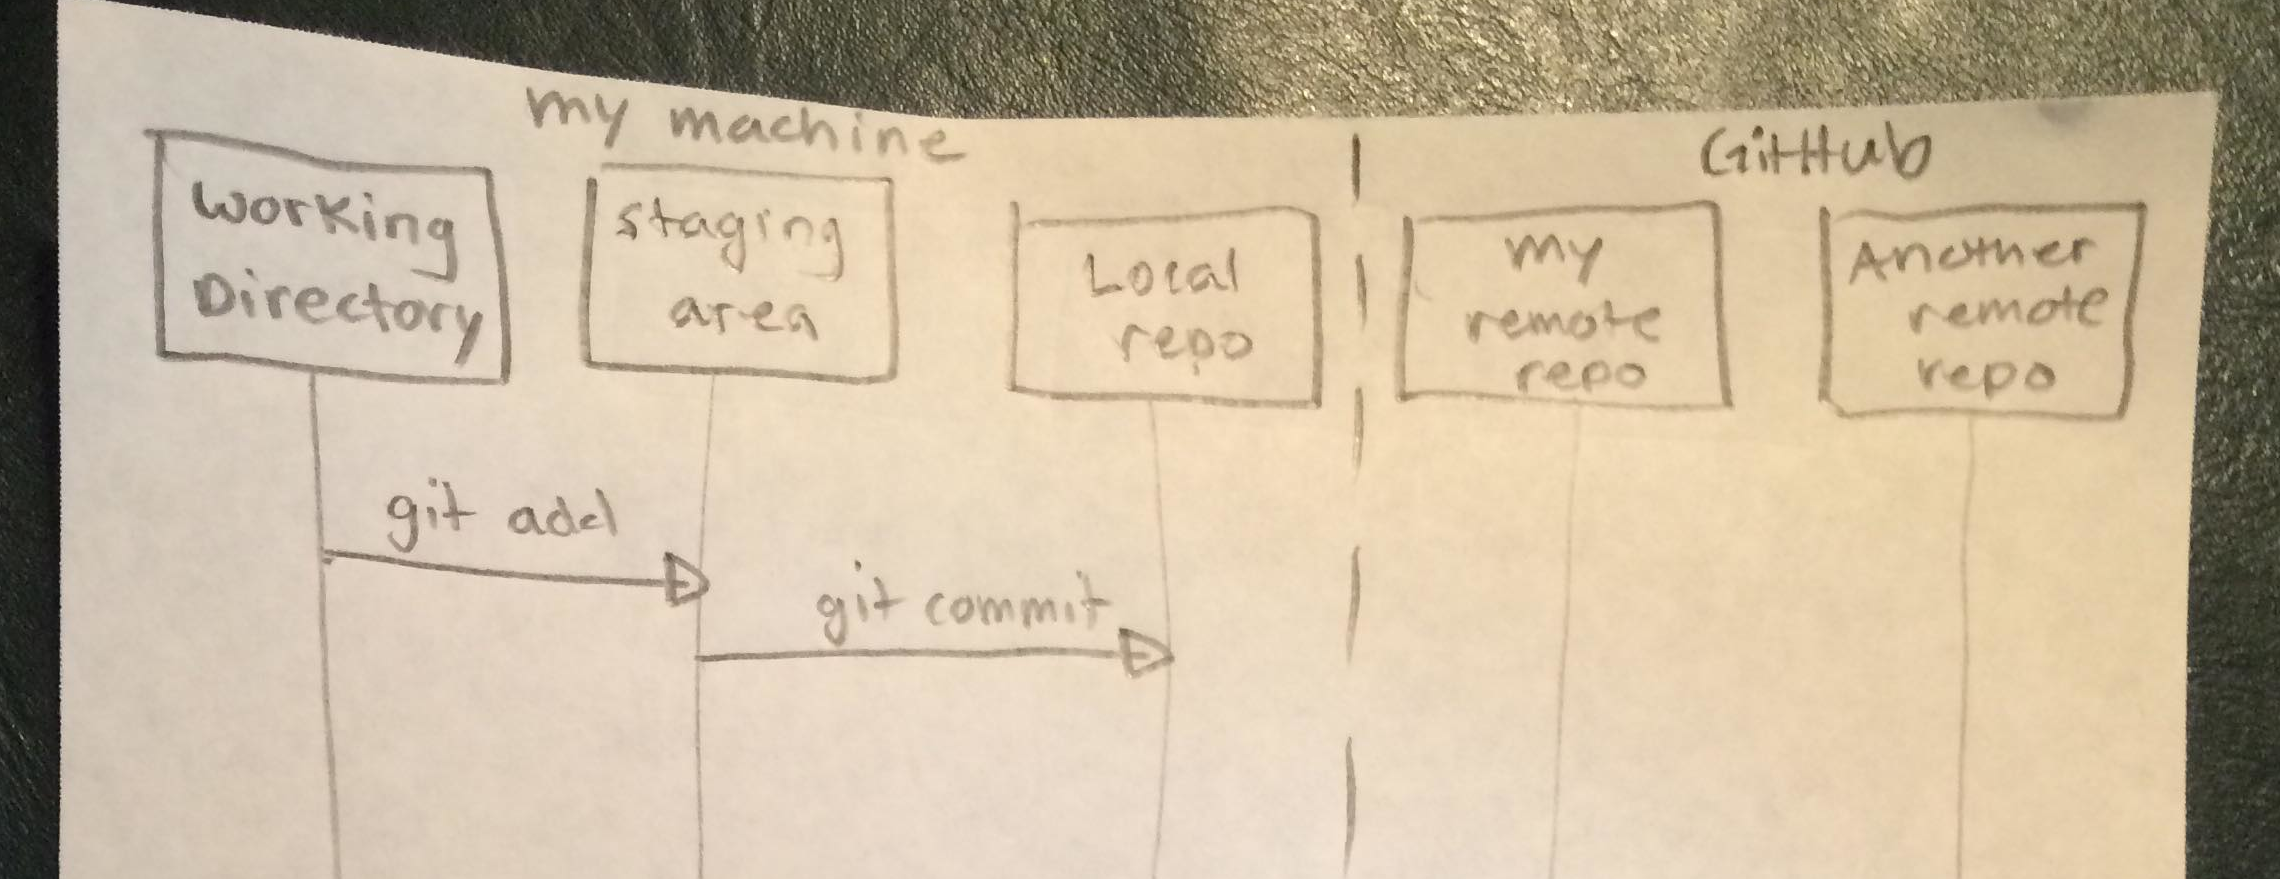 my machine
GitHub
Working
Directory
staging
area
Local
repo
my
remote
repo
Another
remote
repo
git add
git commit